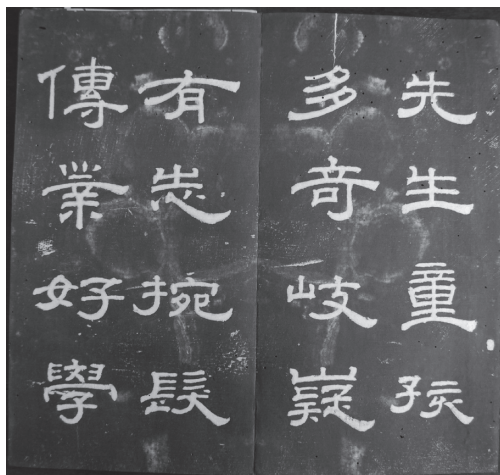 先生童孩
多奇岐嶷
有志捥髮
傳業好學